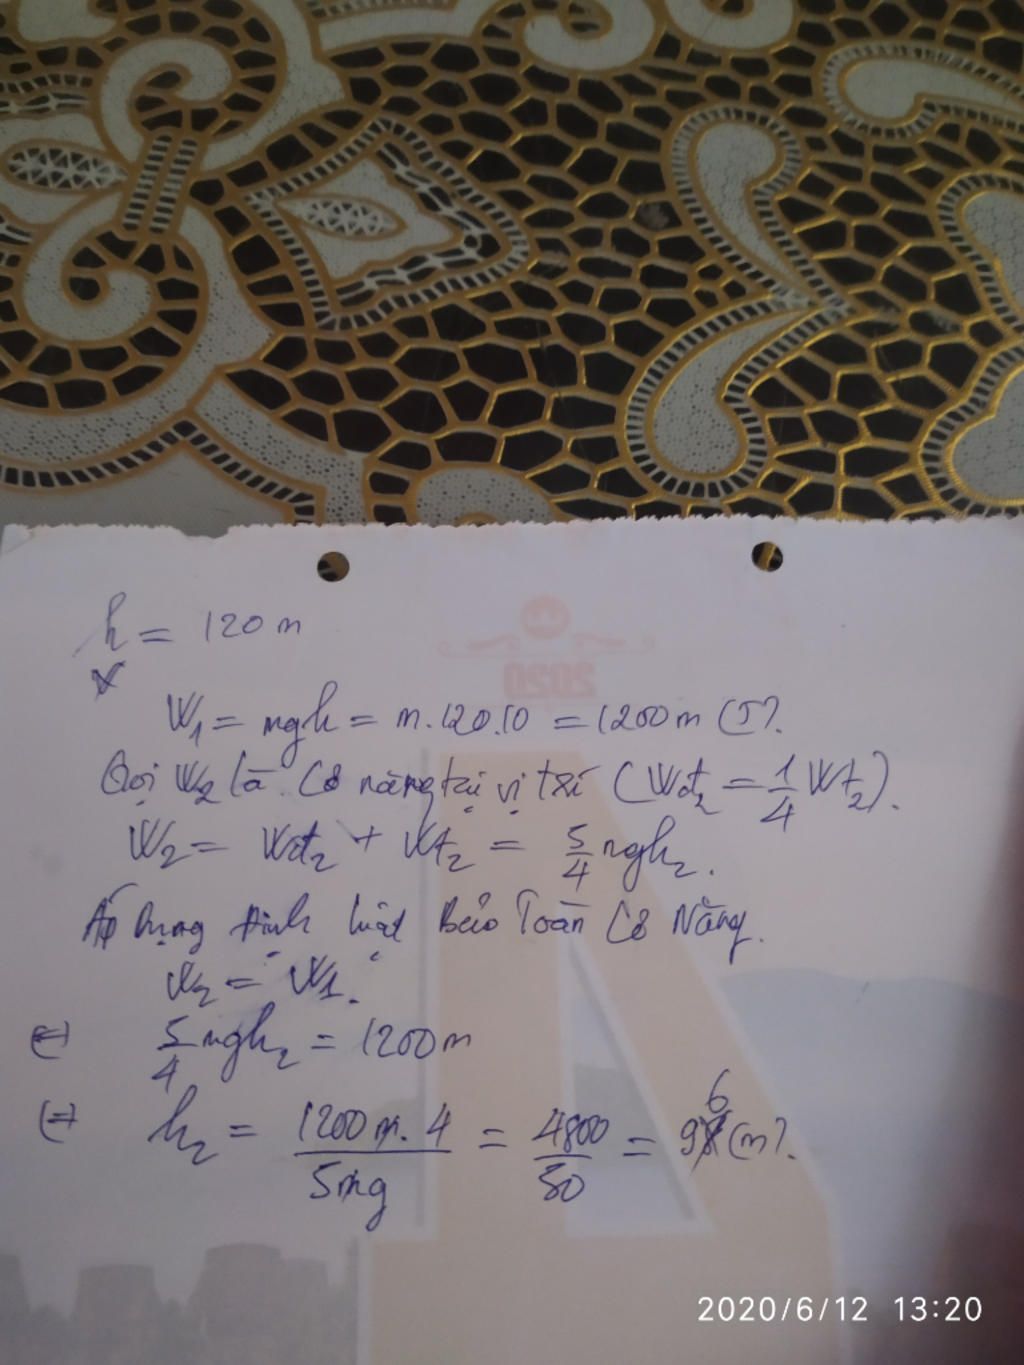 h = 120 m
W₁ = mgh = m.120.10 = 1200m (J).
Gọi W₂ là Cơ năng tại vị trí (Wđ₂ = 1/4 Wt₂).
W₂ = Wđ₂ + Wt₂ = 5/4 mgh₂.
Áp dụng định luật Bảo Toàn Cơ Năng.
W₂ = W₁.
⇔ 5/4 mgh₂ = 1200m
⇔ h₂ = 1200m.4 / 5mg = 4800/50 = 96 (m).
2020
2020/6/12 13:20